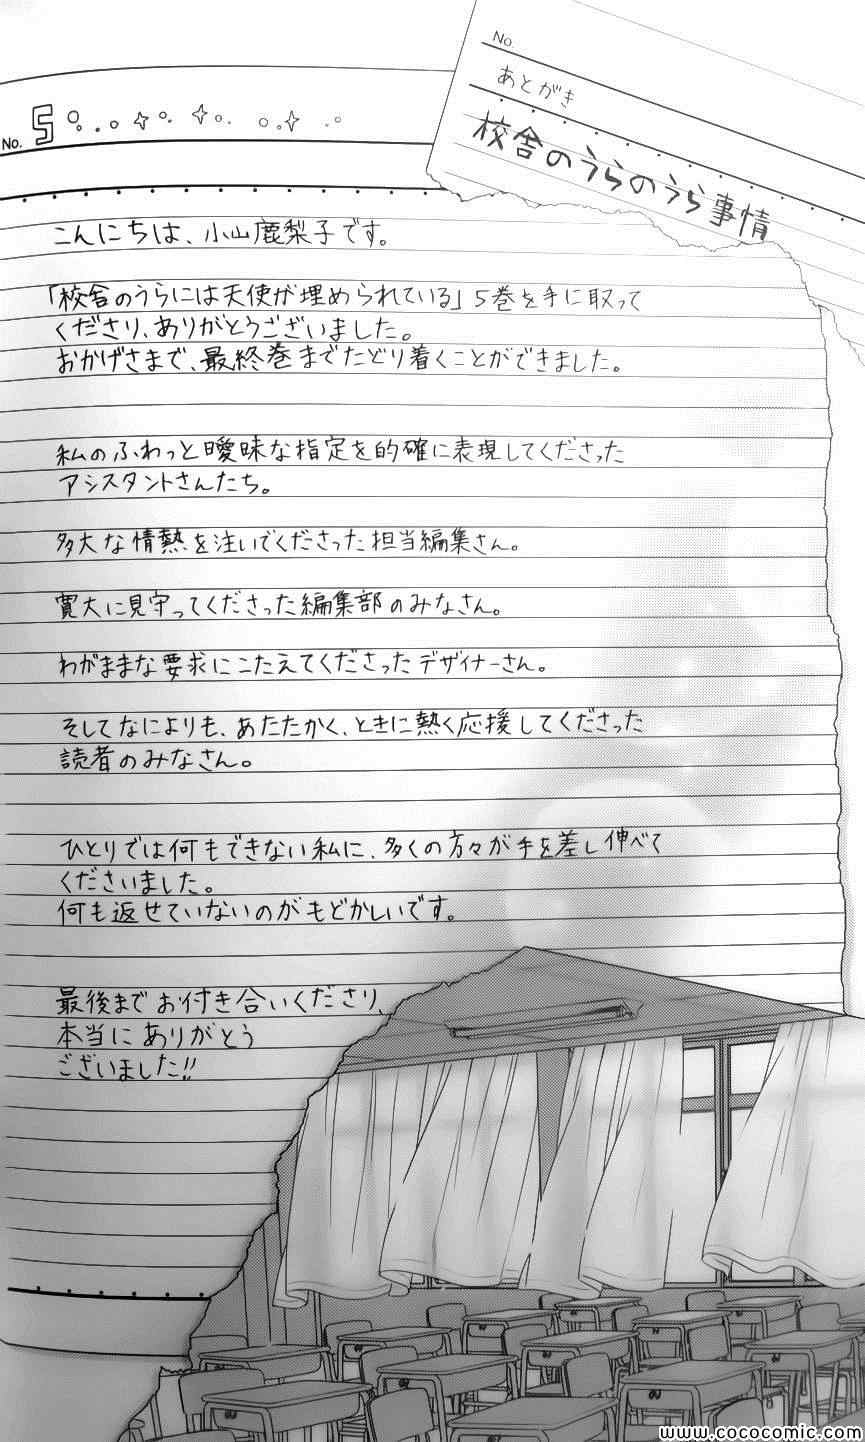 No.
あとがき
校舎のうらのうら事情
No. 5
こんにちは、小山鹿梨子です。
「校舎のうらには天使が埋められている」5巻を手に取って
くださり、ありがとうございました。
おかげさまで、最終巻までたどり着くことができました。
私のふわっと曖昧な指定を的確に表現してくださった
アシスタントさんたち。
多大な情熱を注いでくださった担当編集さん。
寛大に見守ってくださった編集部のみなさん。
わがままな要求にこたえてくださったデザイナーさん。
そしてなによりも、あたたかく、ときに熱く応援してくださった
読者のみなさん。
ひとりでは何もできない私に、多くの方々が手を差し伸べて
くださいました。
何も返せていないのがもどかしいです。
最後までお付き合いくださり、
本当にありがとう
ございました!!
www.cococomic.com